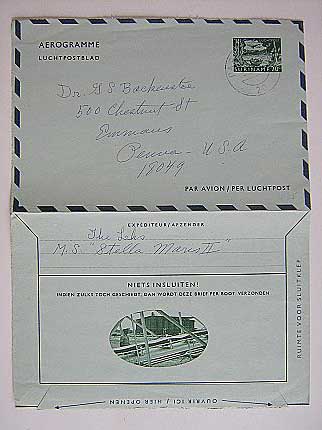 AEROGRAMME
LUCHTPOSTBLAD
SURINAME 20ct
Dr. G S Backenstoe
500 Chestnut St
Emmaus
Penna - U.S.A
18049
PAR AVION/PER LUCHTPOST
EXPÉDITEUR/AFZENDER
The
M.S. "Stella Maris II"
NIETS INSLUITEN!
INDIEN ZULKS TOCH GESCHIEDT, DAN WORDT DEZE BRIEF PER BOOT VERZONDEN
RUIMTE VOOR SLUITKLEP
OUVRIR ICI / HIER OPENEN